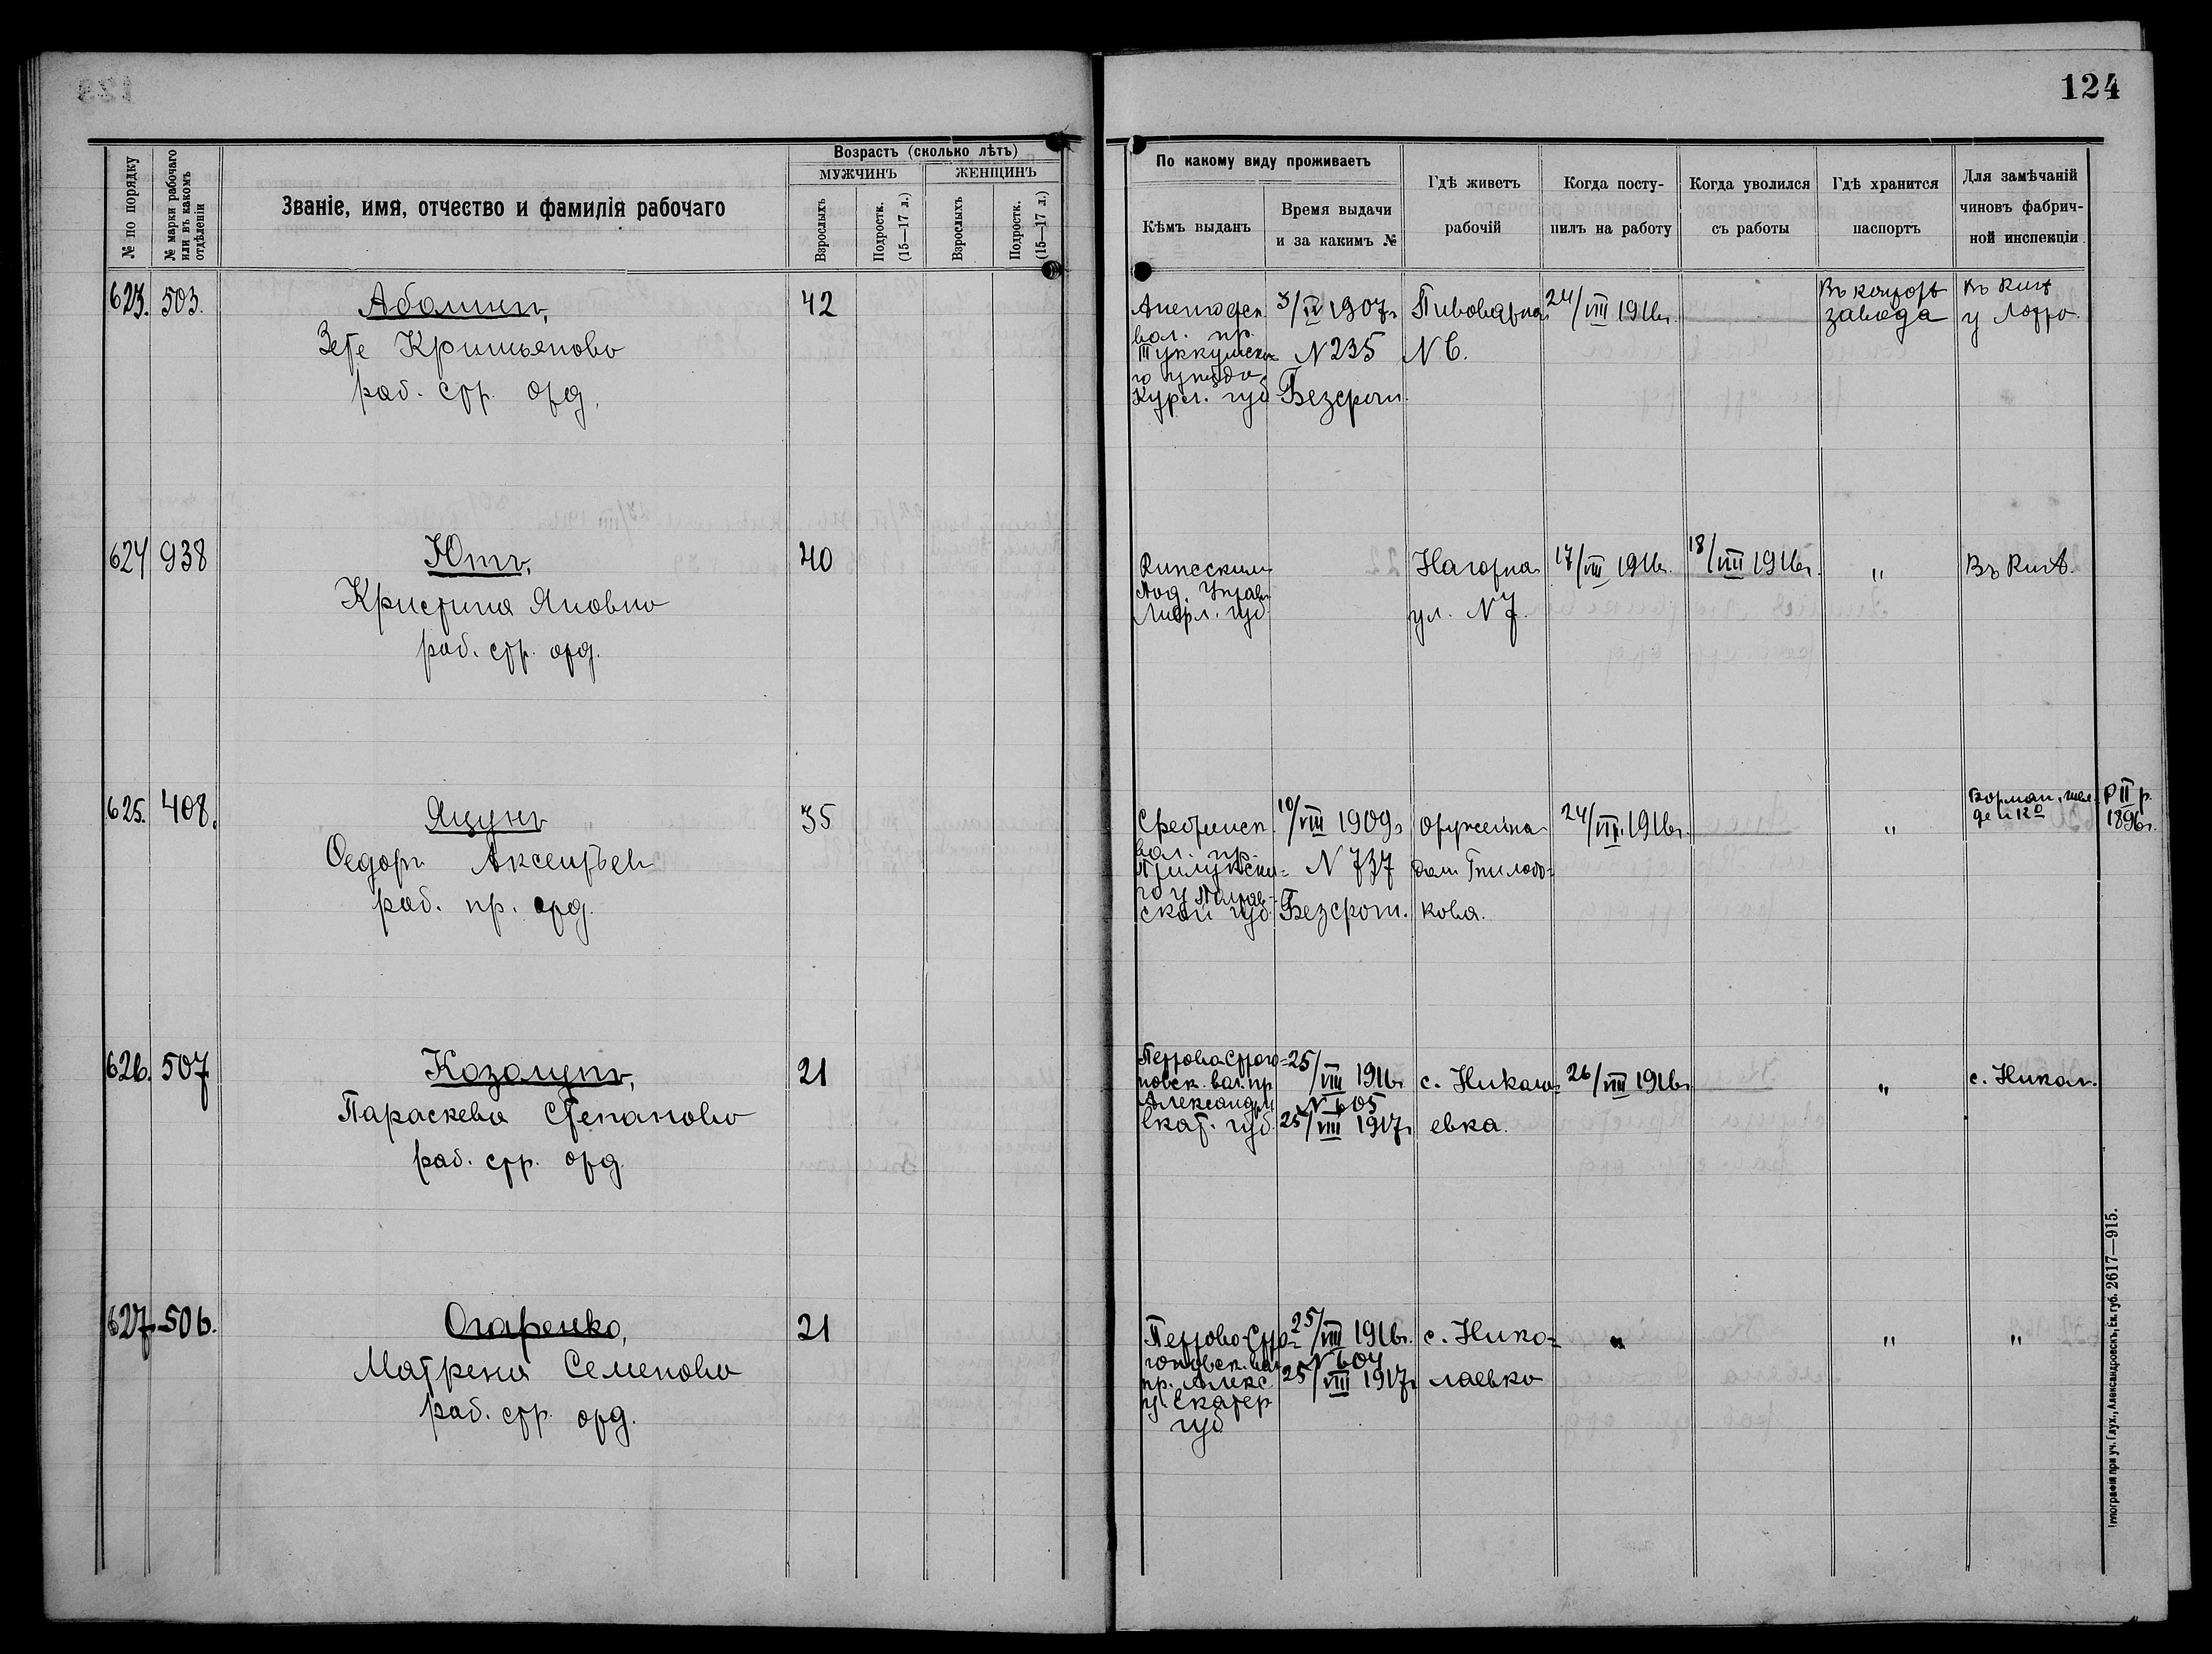 124
№ по порядку
№ марки рабочаго или въ какомъ отдѣленіи
Званіе, имя, отчество и фамилія рабочаго
Возрастъ (сколько лѣтъ)
МУЖЧИНЪ
ЖЕНЩИНЪ
Взрослыхъ
Подростк. (15—17 л.)
Взрослыхъ
Подростк. (15—17 л.)
По какому виду проживаетъ
Кѣмъ выданъ
Время выдачи
и за какимъ №
Гдѣ живетъ
рабочій
Когда посту-
пилъ на работу
Когда уволился
съ работы
Гдѣ хранится
паспортъ
Для замѣчаній
чиновъ фабрич-
ной инспекціи
623. 503.
Аболинъ,
Зете Кришьянова
раб. стр. отд.
42
вол. пр.
Туккумска-
го уѣзда
Курл. губ
3/IV 1907г
N 235
Безсроч.
Пивоварная
N 6.
24/VIII 1916г.
Въ конторѣ
завода
у
624 938
Ютъ,
Кристина Яновна
раб. стр. отд.
40
Рижским
Под. Управ
Лифл. губ
Нагорна
ул. N 7.
17/VIII 1916г.
18/VIII 1916г.
"
625. 408.
Яцунъ
Федоръ Аксентьев
раб. пр. отд.
35
Сребнинск.
вол. пр.
Прилукска-
го у Полтав-
ской губ.
10/VIII 1909г
N 737
Безсроч.
Оружейна
дом Гнилоб-
кова.
24/VIII 1916г.
"
Р II р.
1896г.
626. 507
Козолупъ,
Параскева Степанова
раб. стр. отд.
21
Петрово-Строго-
новск. вол. пр
Александр у
Екат. губ.
25/VIII 1916г
N 605
25/VIII 1917г
с. Никола-
евка.
26/VIII 1916г
"
с. Никол.
627 506.
Огаренко,
Матрена Семенова
раб. стр. отд.
21
Петрово-Стро-
гоновск. вол
пр. Алекс
у Екатер
губ
25/VIII 1916г.
N 604
25/VIII 1917г
с. Нико-
лаевка
"
"
"
Типографія при уч. Глух., Александровскъ, Ек. губ. 2617—915.